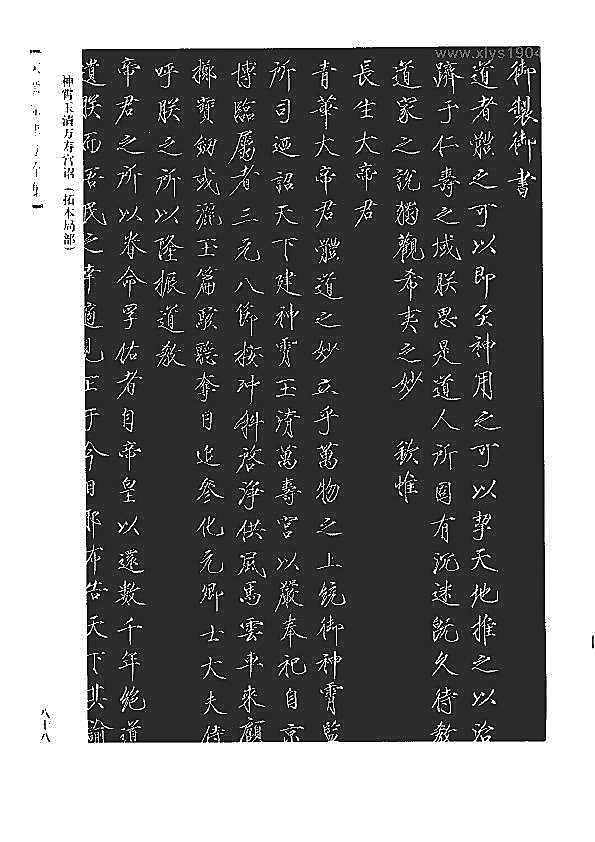 www.xlys1904
御製御書
道者體之可以即至神用之可以挈天地推之以治
躋于仁壽之域朕思是道人所固有沉迷既久待教
道家之說獨觀希夷之妙 欽惟
長生大帝君
青華大帝君體道之妙立乎萬物之上統御神霄監
所司迺詔天下建神霄玉清萬壽宮以嚴奉祀自京
博臨屬者三元八節按沖科啓淨供風馬雲車來顧
擲寶劍或灑玉篇駭聽奪目追參化元卿士大夫侍
呼朕之所以隆振道教
帝君之所以眷命孚佑者自帝皇以還數千年絕道
遺朕而吾民之幸適見正于今日耶布告天下其諭
神霄玉清万寿宫诏（拓本局部）
八十八